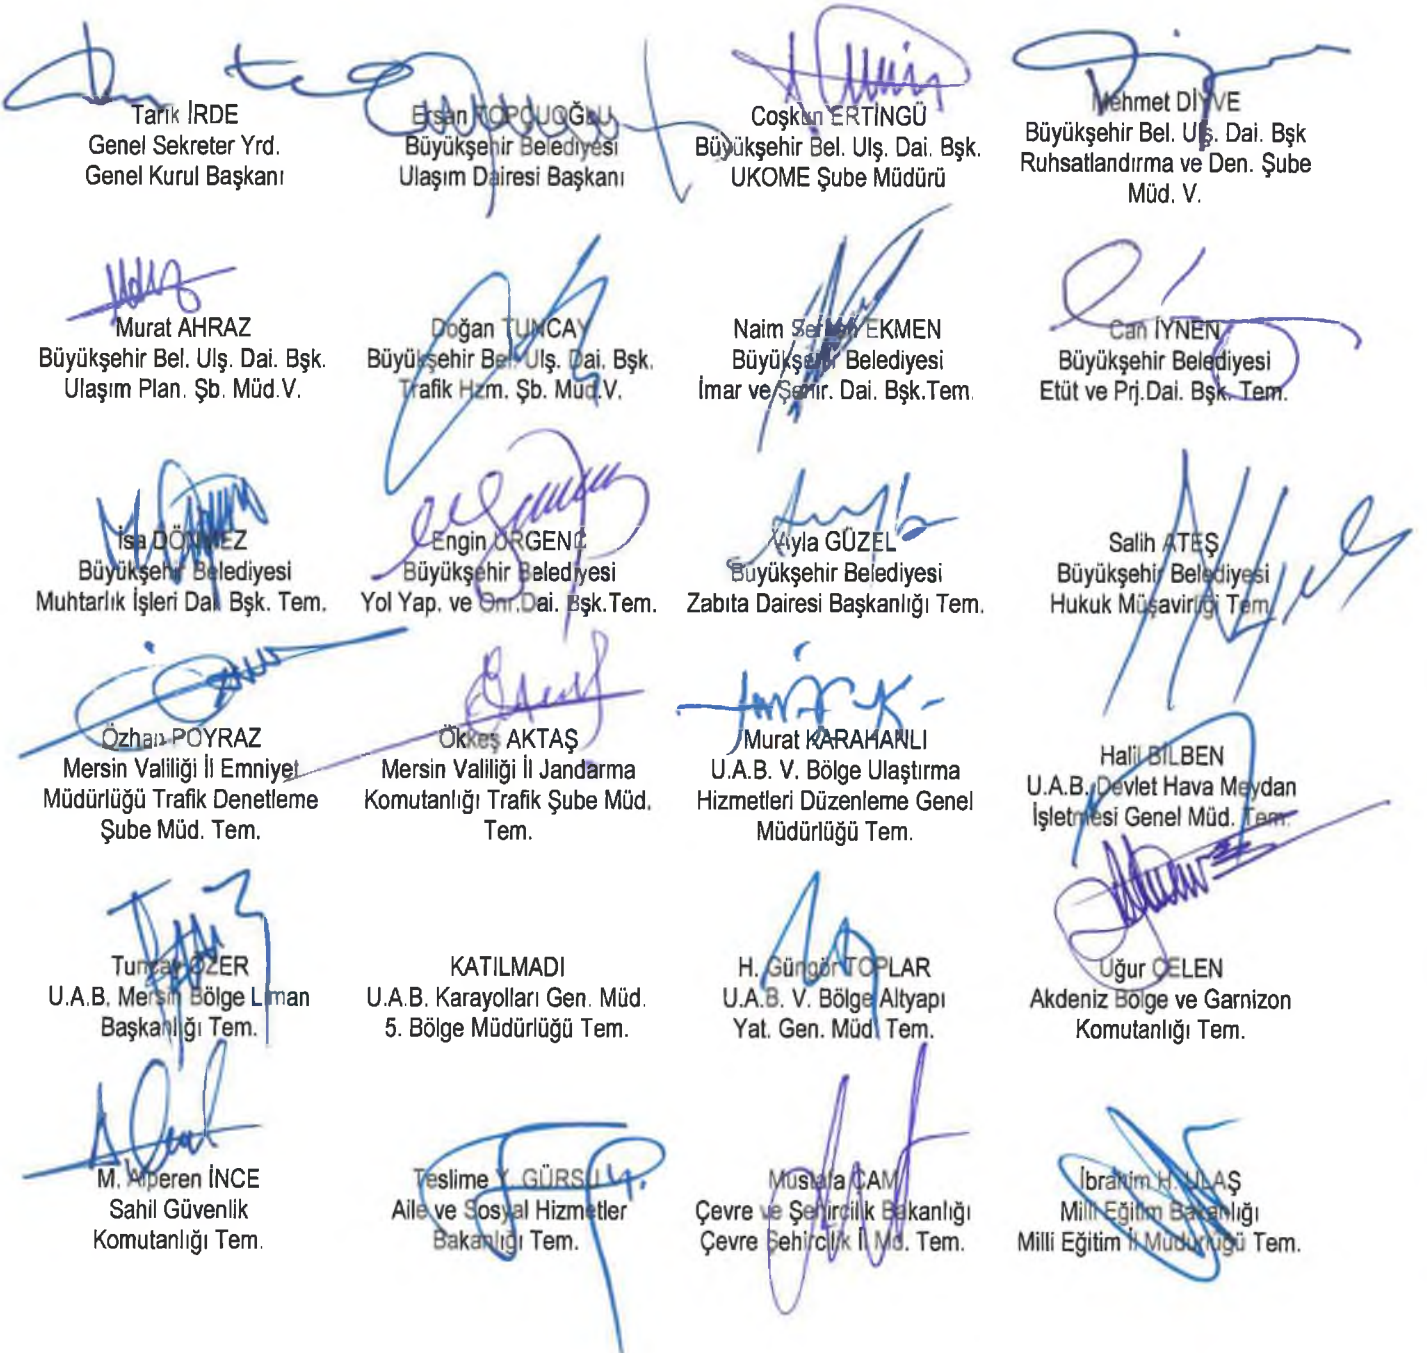 Tarık İRDE
Genel Sekreter Yrd.
Genel Kurul Başkanı
Ersan TOPÇUOĞLU
Büyükşehir Belediyesi
Ulaşım Dairesi Başkanı
Coşkun ERTİNGÜ
Büyükşehir Bel. Ulş. Dai. Bşk.
UKOME Şube Müdürü
Mehmet DİYVE
Büyükşehir Bel. Ulş. Dai. Bşk
Ruhsatlandırma ve Den. Şube
Müd. V.
Murat AHRAZ
Büyükşehir Bel. Ulş. Dai. Bşk.
Ulaşım Plan. Şb. Müd.V.
Doğan TUNCAY
Büyükşehir Bel. Ulş. Dai. Bşk.
Trafik Hzm. Şb. Müd.V.
Naim EKMEN
Büyükşehir Belediyesi
İmar ve Şehir. Dai. Bşk.Tem.
Can İYNEN
Büyükşehir Belediyesi
Etüt ve Prj.Dai. Bşk. Tem.
İsa DÖNMEZ
Büyükşehir Belediyesi
Muhtarlık İşleri Dai. Bşk. Tem.
Engin ÜRGENÇ
Büyükşehir Belediyesi
Yol Yap. ve Onr.Dai. Bşk.Tem.
Ayla GÜZEL
Büyükşehir Belediyesi
Zabıta Dairesi Başkanlığı Tem.
Salih ATEŞ
Büyükşehir Belediyesi
Hukuk Müşavirliği Tem.
Özhan POYRAZ
Mersin Valiliği İl Emniyet
Müdürlüğü Trafik Denetleme
Şube Müd. Tem.
Ökkeş AKTAŞ
Mersin Valiliği İl Jandarma
Komutanlığı Trafik Şube Müd.
Tem.
Murat KARAHANLI
U.A.B. V. Bölge Ulaştırma
Hizmetleri Düzenleme Genel
Müdürlüğü Tem.
Halil BİLBEN
U.A.B. Devlet Hava Meydan
İşletmesi Genel Müd. Tem.
Tuncay ÖZER
U.A.B. Mersin Bölge Liman
Başkanlığı Tem.
KATILMADI
U.A.B. Karayolları Gen. Müd.
5. Bölge Müdürlüğü Tem.
H. Güngör TOPLAR
U.A.B. V. Bölge Altyapı
Yat. Gen. Müd. Tem.
Uğur ÇELEN
Akdeniz Bölge ve Garnizon
Komutanlığı Tem.
M. Alperen İNCE
Sahil Güvenlik
Komutanlığı Tem.
Teslime Y. GÜRSU
Aile ve Sosyal Hizmetler
Bakanlığı Tem.
Mustafa ÇAM
Çevre ve Şehircilik Bakanlığı
Çevre Şehircilik İl Md. Tem.
İbrahim H. ULAŞ
Milli Eğitim Bakanlığı
Milli Eğitim İl Müdürlüğü Tem.